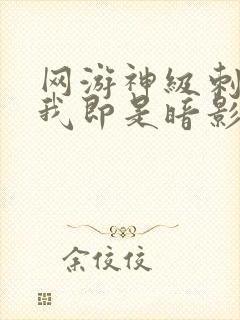 网游神级刺
我即是暗影
余佼佼